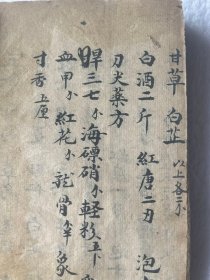 甘草 白芷 以上各三小
白酒二斤 紅唐二刃 泡
刀火藥方
旱三七小 海硝小 輕粉五卜
血甲小 紅花小 龍骨 象
寸香五厘